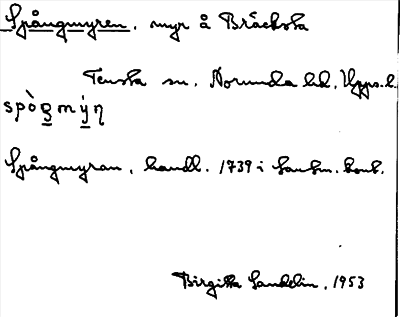 Spångmyren, myr å Bräcksta
Tensta sn, Norunda hd, Upps. l.
spòŋmýn
Spångmyran, handl. 1739 i Lantm. kont.
Birgitta Sandelin, 1953